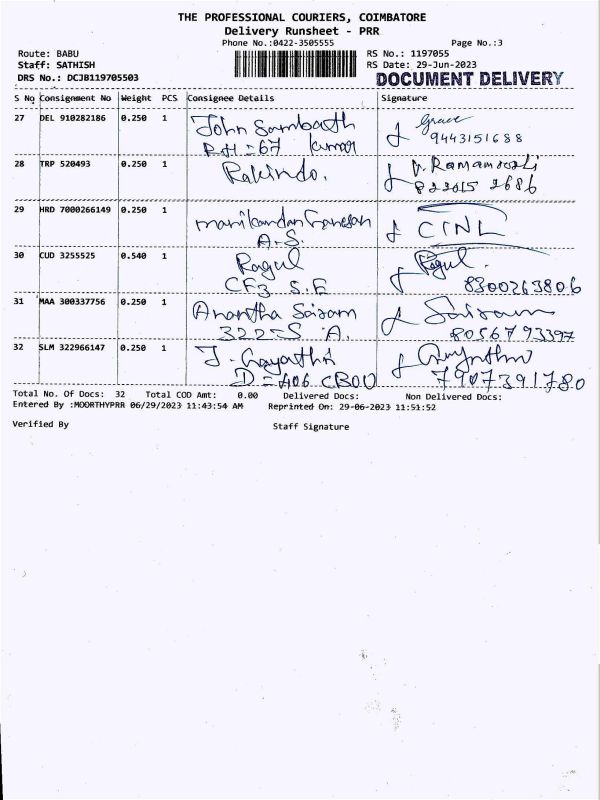 THE PROFESSIONAL COURIERS, COIMBATORE
Delivery Runsheet - PRR
Phone No.:0422-3505555 Page No.:3
Route: BABU RS No.: 1197055
Staff: SATHISH RS Date: 29-Jun-2023
DRS No.: DCJB119705503 DOCUMENT DELIVERY
S No Consignment No Weight PCS Consignee Details Signature
27 DEL 910282186 0.250 1 John Sambath Grace
RH=67 Kumar 9443151688
28 TRP 520493 0.250 1 Rakindo. V. Ramamoorthi
29 HRD 7000266149 0.250 1 manikandan Ganesan
A-S.
30 CUD 3255525 0.540 1 Ragul Ragul.
CF3 S.F 8300263806
31 MAA 300337756 0.250 1 Anantha Sairam Sairam
322-S A. 8056793397
32 SLM 322966147 0.250 1 J. Gayathri Gayathri
D=406 CBOU 7907391780
Total No. Of Docs: 32 Total COD Amt: 0.00 Delivered Docs: Non Delivered Docs:
Entered By :MOORTHYPRR 06/29/2023 11:43:54 AM Reprinted On: 29-06-2023 11:51:52
Verified By Staff Signature